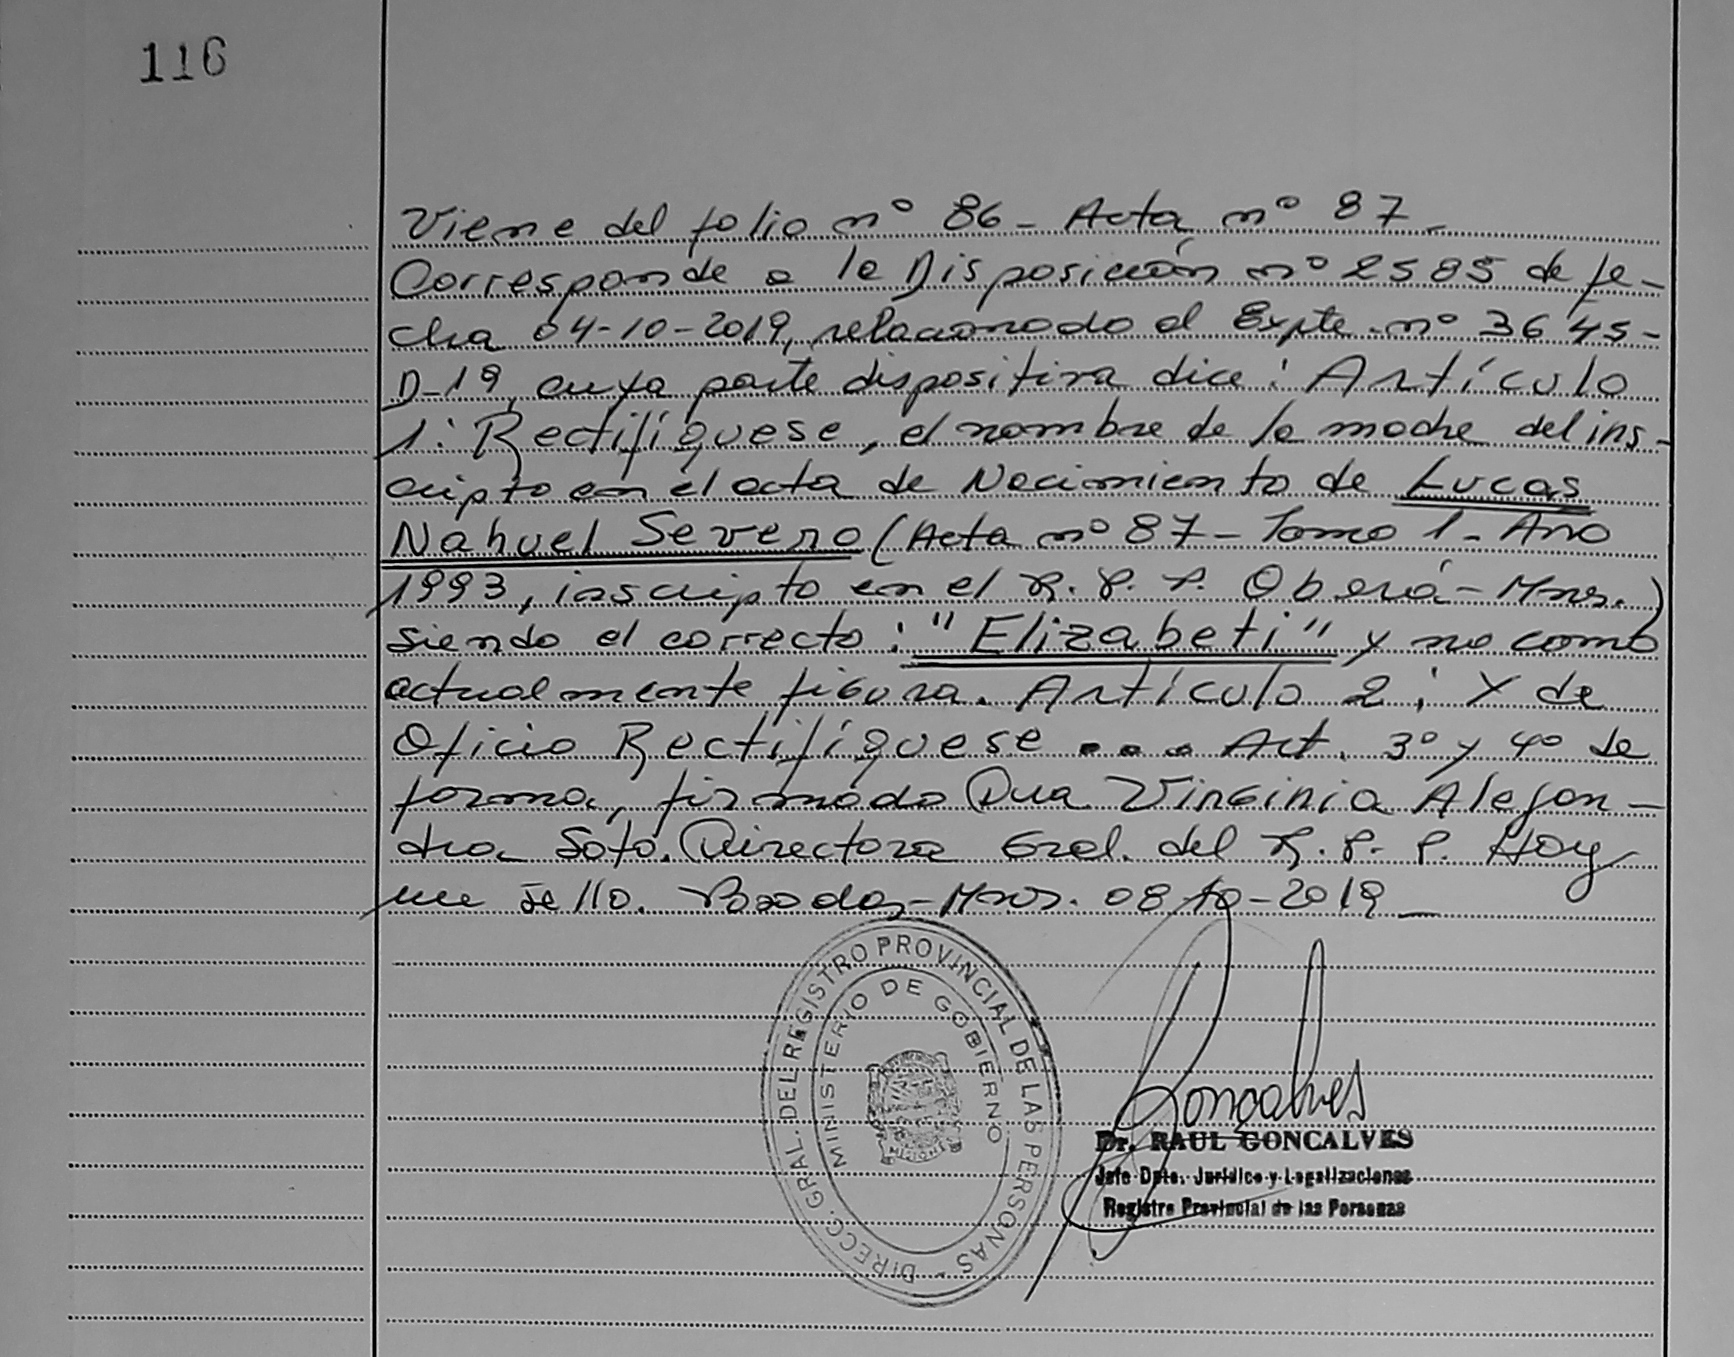 116
Viene del folio nº 86 - Acta nº 87 -
Corresponde a la Disposición nº 2585 de fe-
cha 04-10-2019, relacionado el Expte. nº 3645-
D-19, cuya parte dispositiva dice: Artículo
1: Rectifíquese, el nombre de la madre del ins-
cripto en el acta de Nacimiento de Lucas
Nahuel Severo (Acta nº 87 - Tomo 1 - Año
1993, inscripto en el R. P. P. Oberá - Mnes.)
siendo el correcto: "Elizabeti" y no como
actualmente figura. Artículo 2: Y de
Oficio Rectifíquese .... Art. 3º y 4º de
forma, firmado Dra Virginia Alejan-
dra Soto. Directora Gral. del R. P. P. Hoy
me sello. Posadas - Mnes. 08-10-2019 -
DIRECC. GRAL. DEL REGISTRO PROVINCIAL DE LAS PERSONAS
MINISTERIO DE GOBIERNO
Goncalves
Dr. RAUL GONCALVES
Jefe Dpto. Jurídico y Legalizaciones
Registro Provincial de las Personas